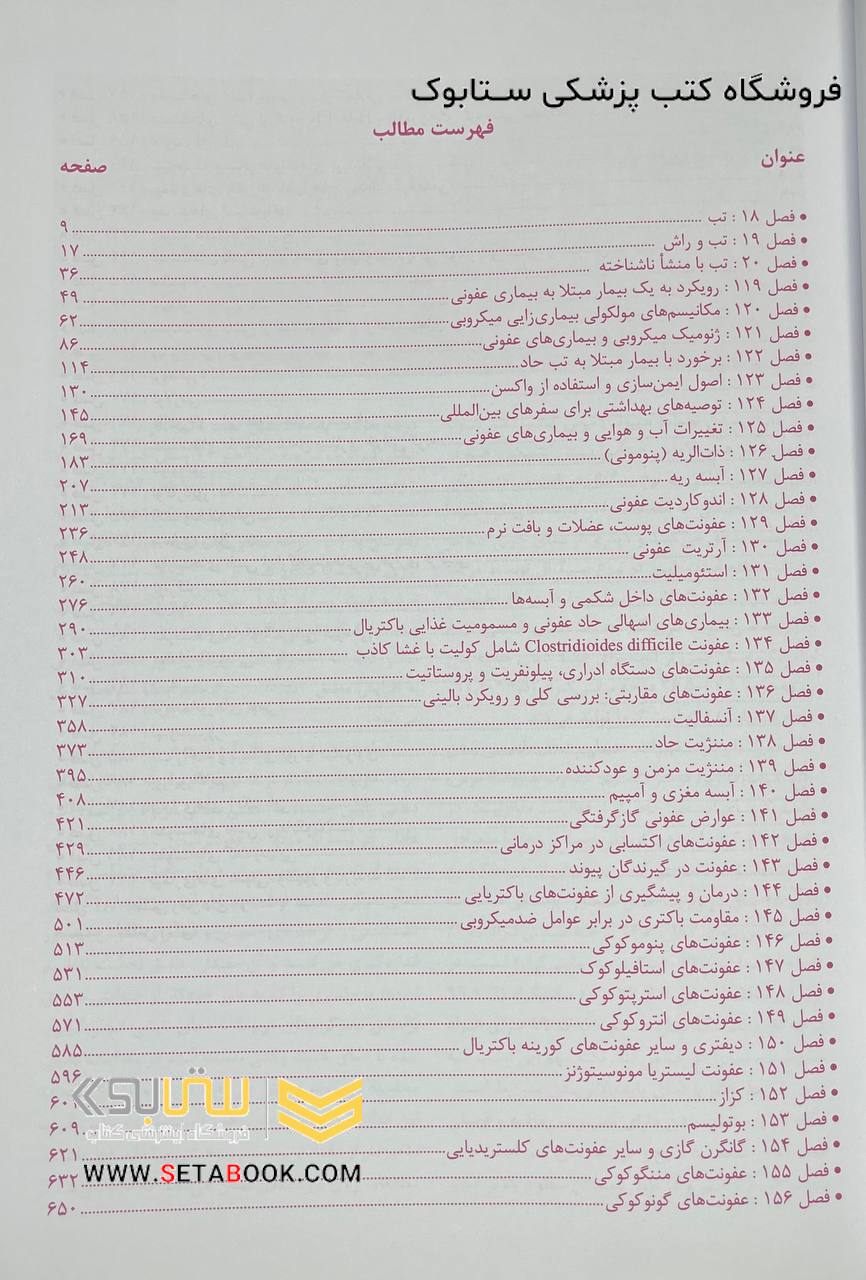 فروشگاه کتب پزشکی ستابوک
فهرست مطالب
عنوان صفحه
• فصل ۱۸ : تب ........ ۹
• فصل ۱۹ : تب و راش ........ ۱۷
• فصل ۲۰ : تب با منشأ ناشناخته ........ ۳۶
• فصل ۱۱۹ : رویکرد به یک بیمار مبتلا به بیماری عفونی ........ ۴۹
• فصل ۱۲۰ : مکانیسم‌های مولکولی بیماری‌زایی میکروبی ........ ۶۲
• فصل ۱۲۱ : ژنومیک میکروبی و بیماری‌های عفونی ........ ۸۶
• فصل ۱۲۲ : برخورد با بیمار مبتلا به تب حاد ........ ۱۱۴
• فصل ۱۲۳ : اصول ایمن‌سازی و استفاده از واکسن ........ ۱۳۰
• فصل ۱۲۴ : توصیه‌های بهداشتی برای سفرهای بین‌المللی ........ ۱۴۵
• فصل ۱۲۵ : تغییرات آب و هوایی و بیماری‌های عفونی ........ ۱۶۹
• فصل ۱۲۶ : ذات‌الریه (پنومونی) ........ ۱۸۳
• فصل ۱۲۷ : آبسه ریه ........ ۲۰۷
• فصل ۱۲۸ : اندوکاردیت عفونی ........ ۲۱۳
• فصل ۱۲۹ : عفونت‌های پوست، عضلات و بافت نرم ........ ۲۳۶
• فصل ۱۳۰ : آرتریت عفونی ........ ۲۴۸
• فصل ۱۳۱ : استئومیلیت ........ ۲۶۰
• فصل ۱۳۲ : عفونت‌های داخل شکمی و آبسه‌ها ........ ۲۷۶
• فصل ۱۳۳ : بیماری‌های اسهالی حاد عفونی و مسمومیت غذایی باکتریال ........ ۲۹۰
• فصل ۱۳۴ : عفونت Clostridioides difficile شامل کولیت با غشا کاذب ........ ۳۰۳
• فصل ۱۳۵ : عفونت‌های دستگاه ادراری، پیلونفریت و پروستاتیت ........ ۳۱۰
• فصل ۱۳۶ : عفونت‌های مقاربتی: بررسی کلی و رویکرد بالینی ........ ۳۲۷
• فصل ۱۳۷ : آنسفالیت ........ ۳۵۸
• فصل ۱۳۸ : مننژیت حاد ........ ۳۷۳
• فصل ۱۳۹ : مننژیت مزمن و عودکننده ........ ۳۹۵
• فصل ۱۴۰ : آبسه مغزی و آمپیم ........ ۴۰۸
• فصل ۱۴۱ : عوارض عفونی گازگرفتگی ........ ۴۲۱
• فصل ۱۴۲ : عفونت‌های اکتسابی در مراکز درمانی ........ ۴۲۹
• فصل ۱۴۳ : عفونت در گیرندگان پیوند ........ ۴۴۶
• فصل ۱۴۴ : درمان و پیشگیری از عفونت‌های باکتریایی ........ ۴۷۲
• فصل ۱۴۵ : مقاومت باکتری در برابر عوامل ضدمیکروبی ........ ۵۰۱
• فصل ۱۴۶ : عفونت‌های پنوموکوکی ........ ۵۱۳
• فصل ۱۴۷ : عفونت‌های استافیلوکوک ........ ۵۳۱
• فصل ۱۴۸ : عفونت‌های استرپتوکوکی ........ ۵۵۳
• فصل ۱۴۹ : عفونت‌های انتروکوکی ........ ۵۷۱
• فصل ۱۵۰ : دیفتری و سایر عفونت‌های کورینه باکتریال ........ ۵۸۵
• فصل ۱۵۱ : عفونت لیستریا مونوسیتوژنز ........ ۵۹۶
• فصل ۱۵۲ : کزاز ........ ۶۰۱
• فصل ۱۵۳ : بوتولیسم ........ ۶۰۹
• فصل ۱۵۴ : گانگرن گازی و سایر عفونت‌های کلستریدیایی ........ ۶۲۱
• فصل ۱۵۵ : عفونت‌های مننگوکوکی ........ ۶۳۲
• فصل ۱۵۶ : عفونت‌های گونوکوکی ........ ۶۵۰
ستابوک
فروشگاه اینترنتی کتاب
WWW.SETABOOK.COM